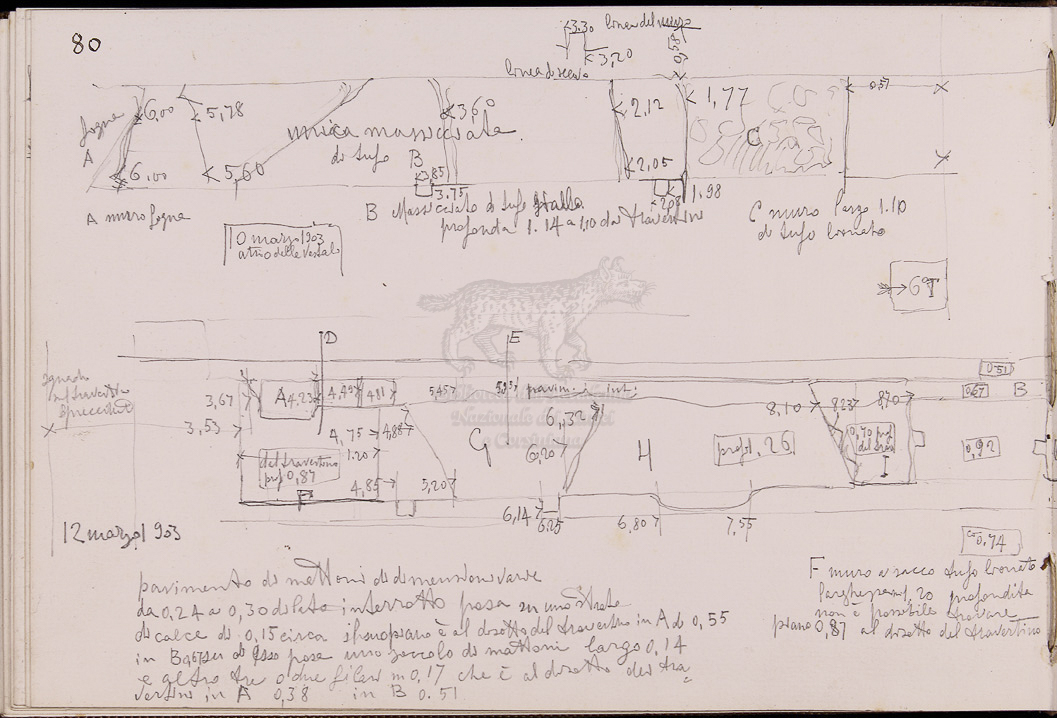 80
3.30 linea del muro
0,58
3,20
linea di scavo
fogna
A
6,00
5,78
3,60
2,12
1,77
0,57
unica massicciata
di tufo
C
6,00
5,60
B
,85
3.75
2,05
1.98
A muro fogna
B Massicciata di tufo giallo
profonda 1.14 a 1,10 dal travertino
C muro largo 1.10
di tufo
10 marzo 1903
atrio delle Vestali
6
D
E
0.51
3,67
A 4,23
4,45
481
5,45
pavim.
8,10
823
870
0,67
B
3,53
4,75
4,88
G
6,32
6,20
H
prof 1.26
0,70 prof
I
0,92
del travertino
prof 0,87
1.20
F
4,85
5,20
6,14
6.25
6,80
7,55
0,74
12 marzo 903
pavimento di mattoni di dimensioni varie
da 0,24 a 0,30 di lato interrotto posa su uno strato
di calce di 0,15 circa il suo piano è al disotto del travertino in A di 0,55
in B di esso posa uno zoccolo di mattoni largo 0,14
e altro tre o due filari m 0,17 che è al disotto del tra
vertino in A 0,38 in B 0.51
F muro a sacco tufo
larghezza 1,20 profondità
non è possibile trovare
piano 0,87 al disotto del travertino